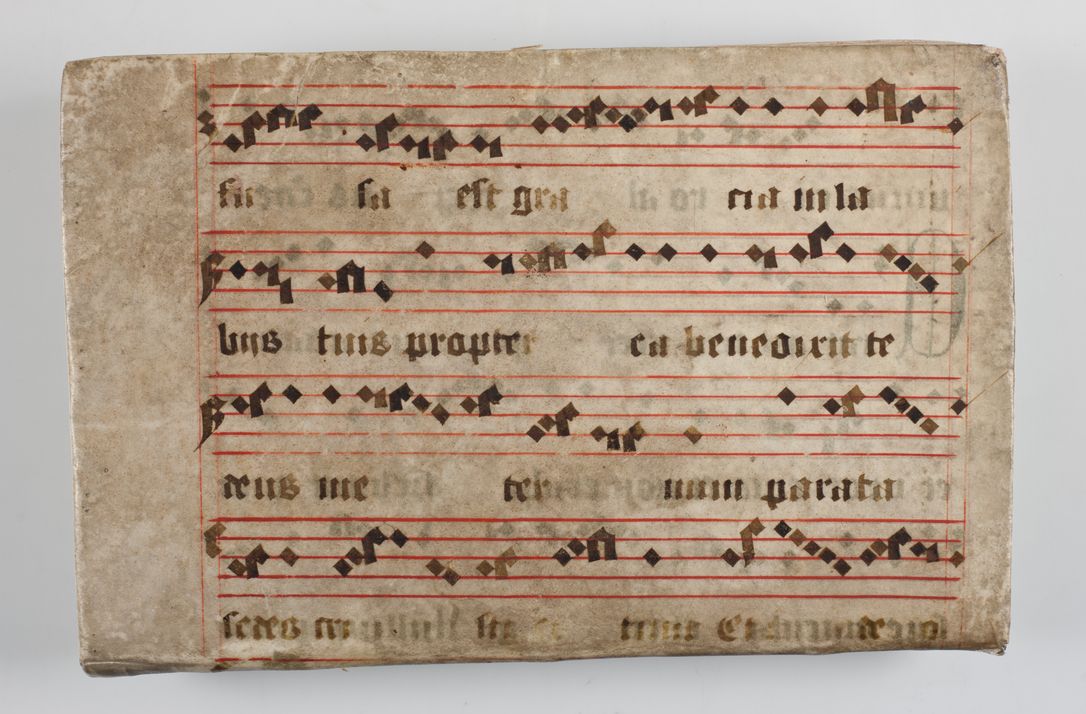 fu sa est gra cia in la
bijs tuis propter ea benedixit te
deus in e ter num parata
sedes